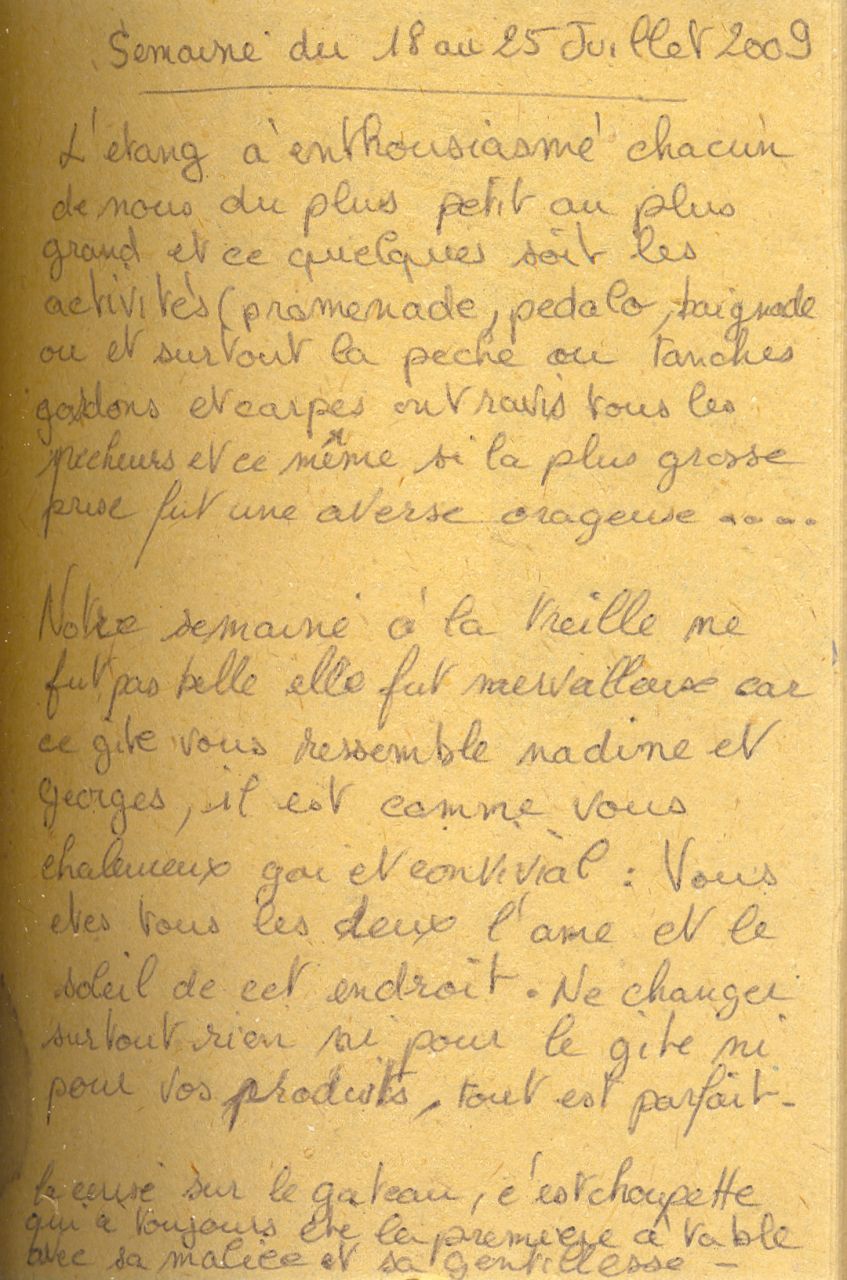 Semaine du 18 au 25 Juillet 2009
L'etang à enthousiasmé chacun
de nous du plus petit au plus
grand et ce quelques soit les
activités (promenade, pedalo, baignade
ou et surtout la peche ou tanches
gardons et carpes ont ravis tous les
pecheurs et ce même si la plus grosse
prise fut une averse orageuse .....
Notre semaine à la treille ne
fut pas belle elle fut merveilleuse car
ce gite vous ressemble nadine et
Georges, il est comme vous
chaleureux gai et convivial : Vous
etes tous les deux l'ame et le
soleil de cet endroit. Ne changer
surtout rien ni pour le gite ni
pour vos produits, tout est parfait -
la cerise sur le gateau, c'est choupette
qui à toujours été la premiere à table
avec sa malice et sa gentillesse -